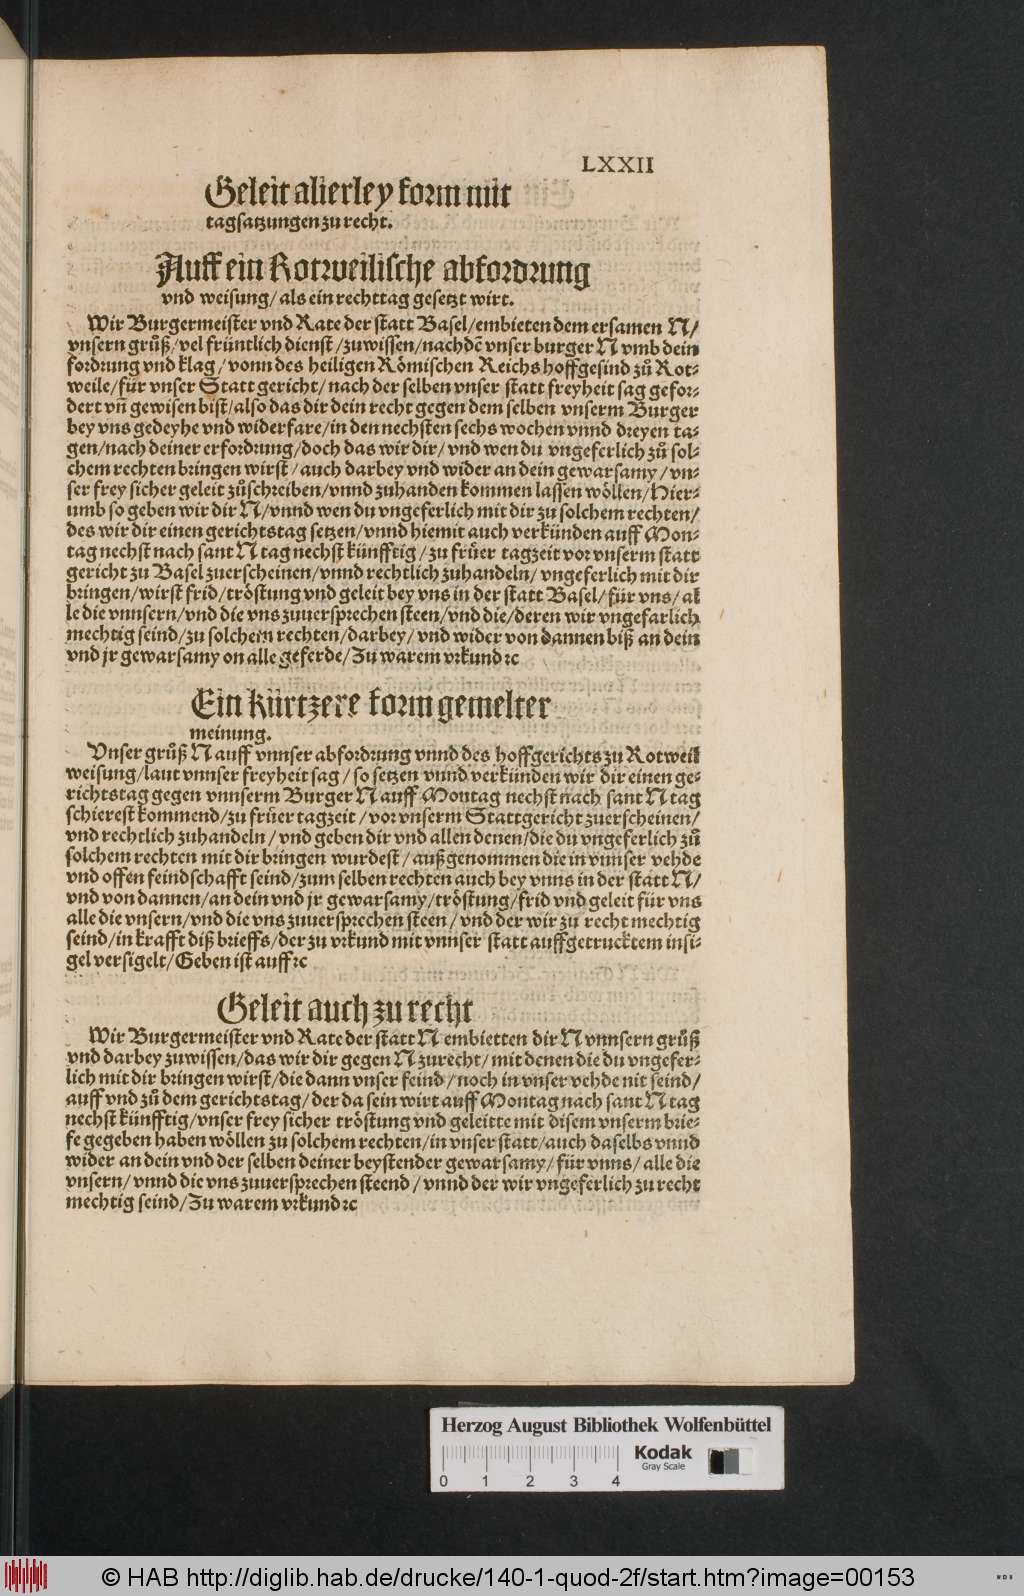 LXXII
Geleit allerley form mit
tagsatzungen zu recht.
Auff ein Rotweilische abfordrung
vnd weisung/ als ein rechttag gesetzt wirt.
Wir Burgermeister vnd Rate der statt Basel/embieten dem ersamen N/
vnsern gruͦß/vel früntlich dienst/zuwissen/nachdẽ vnser burger N vmb dein
fordrung vnd klag/ vonn des heiligen Römischen Reichs hoffgesind zuͦ Rot⸗
weile/für vnser Statt gericht/ nach der selben vnser statt freyheit sag gefor⸗
dert vñ gewisen bist/also das dir dein recht gegen dem selben vnserm Burger
bey vns gedeyhe vnd widerfare/in den nechsten sechs wochen vnnd dreyen ta⸗
gen/nach deiner erfordrung/doch das wir dir/ vnd wen du vngeferlich zuͦ sol⸗
chem rechten bringen wirst/auch darbey vnd wider an dein gewarsamy/ vn⸗
ser frey sicher geleit zuͦschreiben/vnnd zuhanden kommen lassen wöllen/Hier⸗
umb so geben wir dir N/vnnd wen du vngeferlich mit dir zu solchem rechten/
des wir dir einen gerichtstag setzen/vnnd hiemit auch verkünden auff Mon⸗
tag nechst nach sant N tag nechst künfftig/zu fruͤer tagzeit vor vnserm statt
gericht zu Basel zuerscheinen/vnnd rechtlich zuhandeln/ vngeferlich mit dir
bringen/wirst frid/tröstung vnd geleit bey vns in der statt Basel/für vns/al
le die vnnsern/vnd die vns zuuersprechen steen/vnd die/deren wir vngefarlich
mechtig seind/zu solchem rechten/darbey/ vnd wider von dannen biß an dein
vnd jr gewarsamy on alle geferde/Zu warem vrkund ꝛc
Ein kürtzere form gemelter
meinung.
Vnser gruͦß N auff vnnser abfordrung vnnd des hoffgerichts zu Rotweil
weisung/laut vnnser freyheit sag/ so setzen vnnd verkünden wir dir einen ge⸗
richtstag gegen vnnserm Burger N auff Montag nechst nach sant N tag
schierest kommend/zu fruͤer tagzeit/vor vnserm Stattgericht zuerscheinen/
vnd rechtlich zuhandeln/ vnd geben dir vnd allen denen/die du vngeferlich zuͦ
solchem rechten mit dir bringen wurdest/ außgenommen die in vnnser vehde
vnd offen feindschafft seind/zum selben rechten auch bey vnns in der statt N/
vnd von dannen/an dein vnd jr gewarsamy/tröstung/frid vnd geleit für vns
alle die vnsern/vnd die vns zuuersprechen steen/ vnd der wir zu recht mechtig
seind/in krafft diß brieffs/der zu vrkund mit vnnser statt auffgetrucktem insi⸗
gel versigelt/Geben ist auff ꝛc
Geleit auch zu recht
Wir Burgermeister vnd Rate der statt N embietten dir N vnnsern gruͦß
vnd darbey zuwissen/das wir dir gegen N zurecht/ mit denen die du vngefer⸗
lich mit dir bringen wirst/die dann vnser feind/noch in vnser vehde nit seind/
auff vnd zuͦ dem gerichtstag/der da sein wirt auff Montag nach sant N tag
nechst künfftig/vnser frey sicher tröstung vnd geleitte mit disem vnserm brie⸗
fe gegeben haben wöllen zu solchem rechten/in vnser statt/auch daselbs vnnd
wider an dein vnd der selben deiner beystender gewarsamy/für vnns/ alle die
vnsern/ vnnd die vns zuuersprechen steend/vnnd der wir vngeferlich zu recht
mechtig seind/Zu warem vrkund ꝛc
Herzog August Bibliothek Wolfenbüttel
Kodak
Gray Scale
0 1 2 3 4
© HAB http://diglib.hab.de/drucke/140-1-quod-2f/start.htm?image=00153